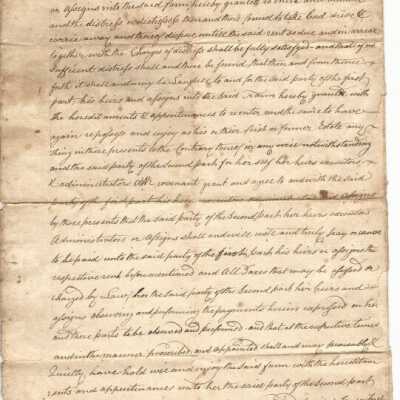 or assigns into the said farm hereby granted to enter and
and the distress or distresses then and there found to take lead drive &
carry away and thereof dispose untill the said rent so due and in arrear
together with the Charges of distress shall be fully satisfied and that if no
Sufficient distress shall and there be found that then and from thence
forth it shall and may be Lawful to and for the said party of the first
part his heirs and assigns into the said Farm hereby granted with
the heredits aments & appurtenances to reenter and the same to have
again repossess and enjoy as his or their first or former Estate any
thing in these presents to the Contrary thereof in any wise notwithstanding
and the said party of the second part for her self her heirs executors
& administrators doth covenant grant and agree to and with the said
party of the first part his heirs executors and assigns
by these presents that the said party of the second part her heirs executors
Administrators or assigns shall and will well and truly pay or cause
to be paid unto the said party of the first part his heirs or assigns the
respective rent before mentioned and All Taxes that may be assessed or
charged by Law her the said party of the second part her heirs and
assigns observing and performing the payments herein expressed on her
and there parts to be observed and performed and that at the respective times
and in the manner prescribed and appointed shall and may peaceably &
Quietly have hold use and enjoy the said farm with the heredita
ments and appurtenances unto her the said party of the second part